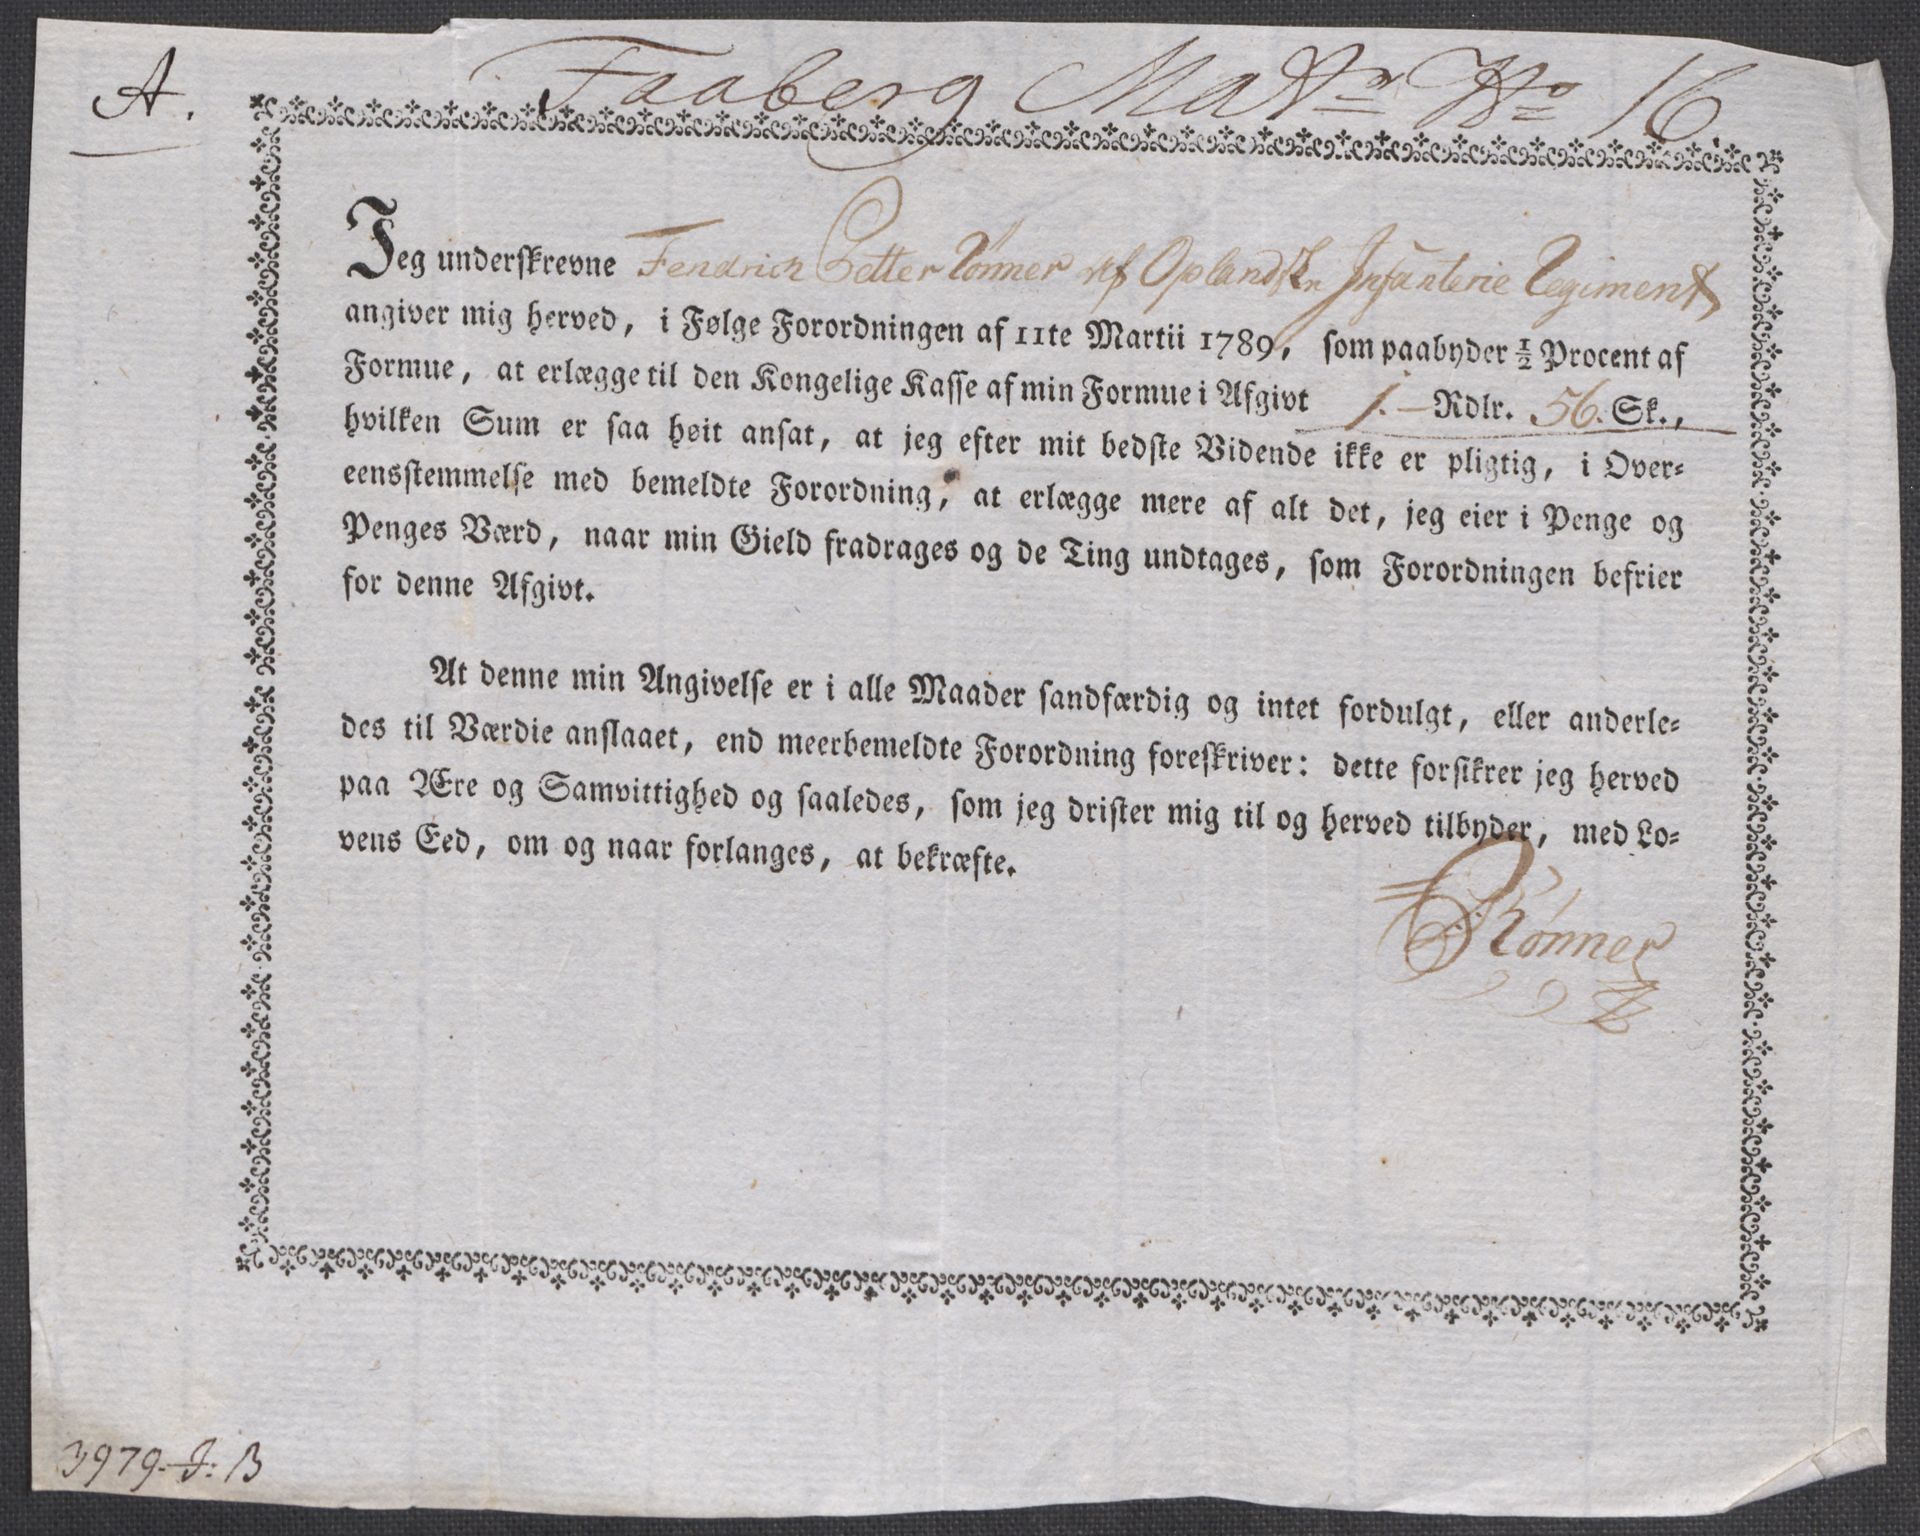 A.
Faaberg Mattr No 16.
Jeg underskrevne Fendrich Petter Rønner af Oplandske Infanterie Regiment
angiver mig herved, i Følge Forordningen af 11te Martii 1789, som paabyder ½ Procent af
Formue, at erlægge til den Kongelige Kasse af min Formue i Afgivt 1.— Rdlr. 56. Sk.,
hvilken Sum er saa høit ansat, at jeg efter mit bedste Vidende ikke er pligtig, i Over-
eensstemmelse med bemeldte Forordning, at erlægge mere af alt det, jeg eier i Penge og
Penges Værd, naar min Gield fradrages og de Ting undtages, som Forordningen befrier
for denne Afgivt.
At denne min Angivelse er i alle Maader sandfærdig og intet fordulgt, eller anderle-
des til Værdie anslaaet, end meerbemeldte Forordning foreskriver: dette forsikrer jeg herved
paa Ære og Samvittighed og saaledes, som jeg drister mig til og herved tilbyder, med Lo-
vens Eed, om og naar forlanges, at bekræfte.
PRønner
3979-J: B